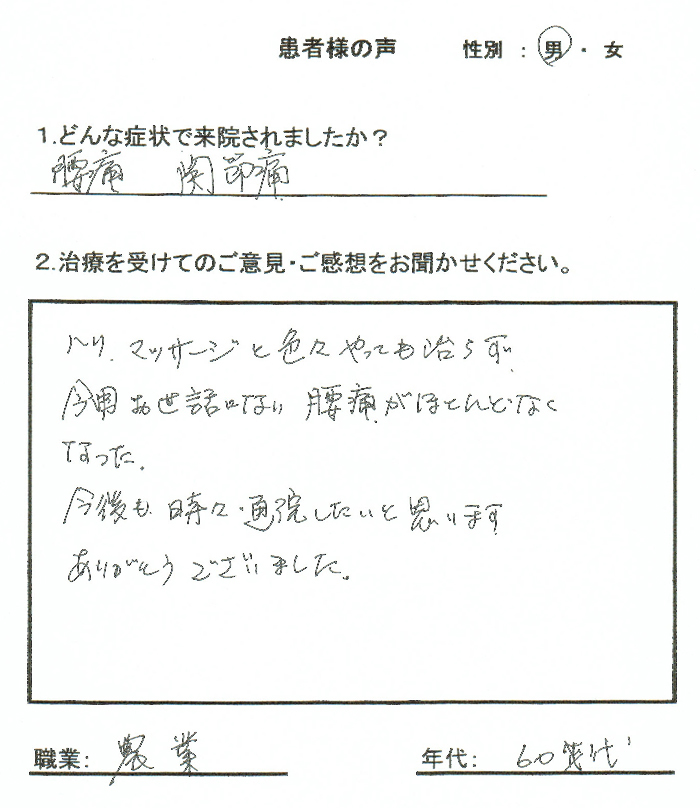 患者様の声 性別 : 男 ・ 女
1.どんな症状で来院されましたか?
腰痛 関節痛
2.治療を受けてのご意見・ご感想をお聞かせください。
ハリ、マッサージと色々やっても治らず、
今回お世話になり 腰痛がほとんどなく
なった。
今後も時々通院したいと思います
ありがとうございました。
職業: 農業 年代: 60歳代